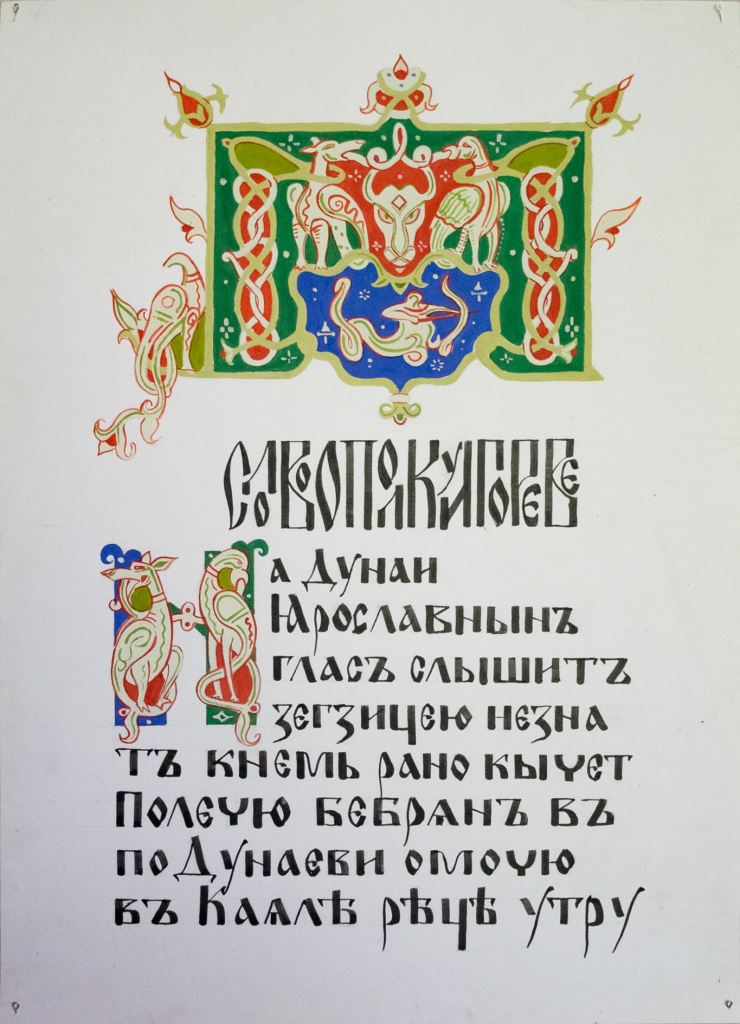 СЛОВО О ПОЛКУ ИГОРЕВЕ
На Дунаи
Ꙗрославнынъ
гласъ слышитъ
зегзицею незна
тъ кнемь рано кычет
Полечую бебрѧнъ въ
по Дунаеви омочую
въ Каѧлѣ рѣцѣ утру